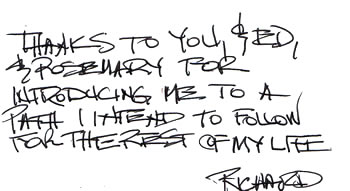 THANKS TO YOU, & ED,
& ROSEMARY FOR
INTRODUCING ME TO A
PATH I INTEND TO FOLLOW
FOR THE REST OF MY LIFE
RICHARD